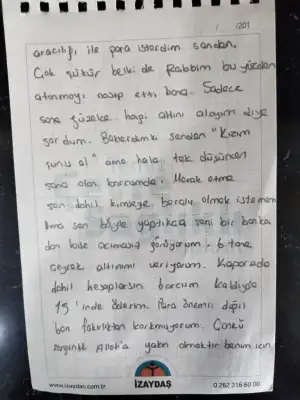 / /201
aracılığı ile para isterdim senden.
Çok şükür belki de Rabbim bu yüzden
atanmayı nasip etti bana. Sadece
sana güzelce hapi altını alayım diye
sordum. Bekerdimki senden "Kızım
şunu al" ama hala tek düşüncen
sana olan borcumda. Merak etme
sen dahil kimseye borçlu olmak istemem
Ama sen böyle yaptıkça seni bir banka
dan bile acımasız görüyorum. 6 tane
çeyrek altınımı veriyorum. Kaporada
dahil hesaplarsın borcum kaldıysa
15'inde öderim. Para önemli değil
ben fakirlikten korkmuyorum. Çünkü
zenginlik Allah'a yakın olmaktır benim için
www.izaydas.com.tr
İZAYDAŞ
0 262 316 60 00